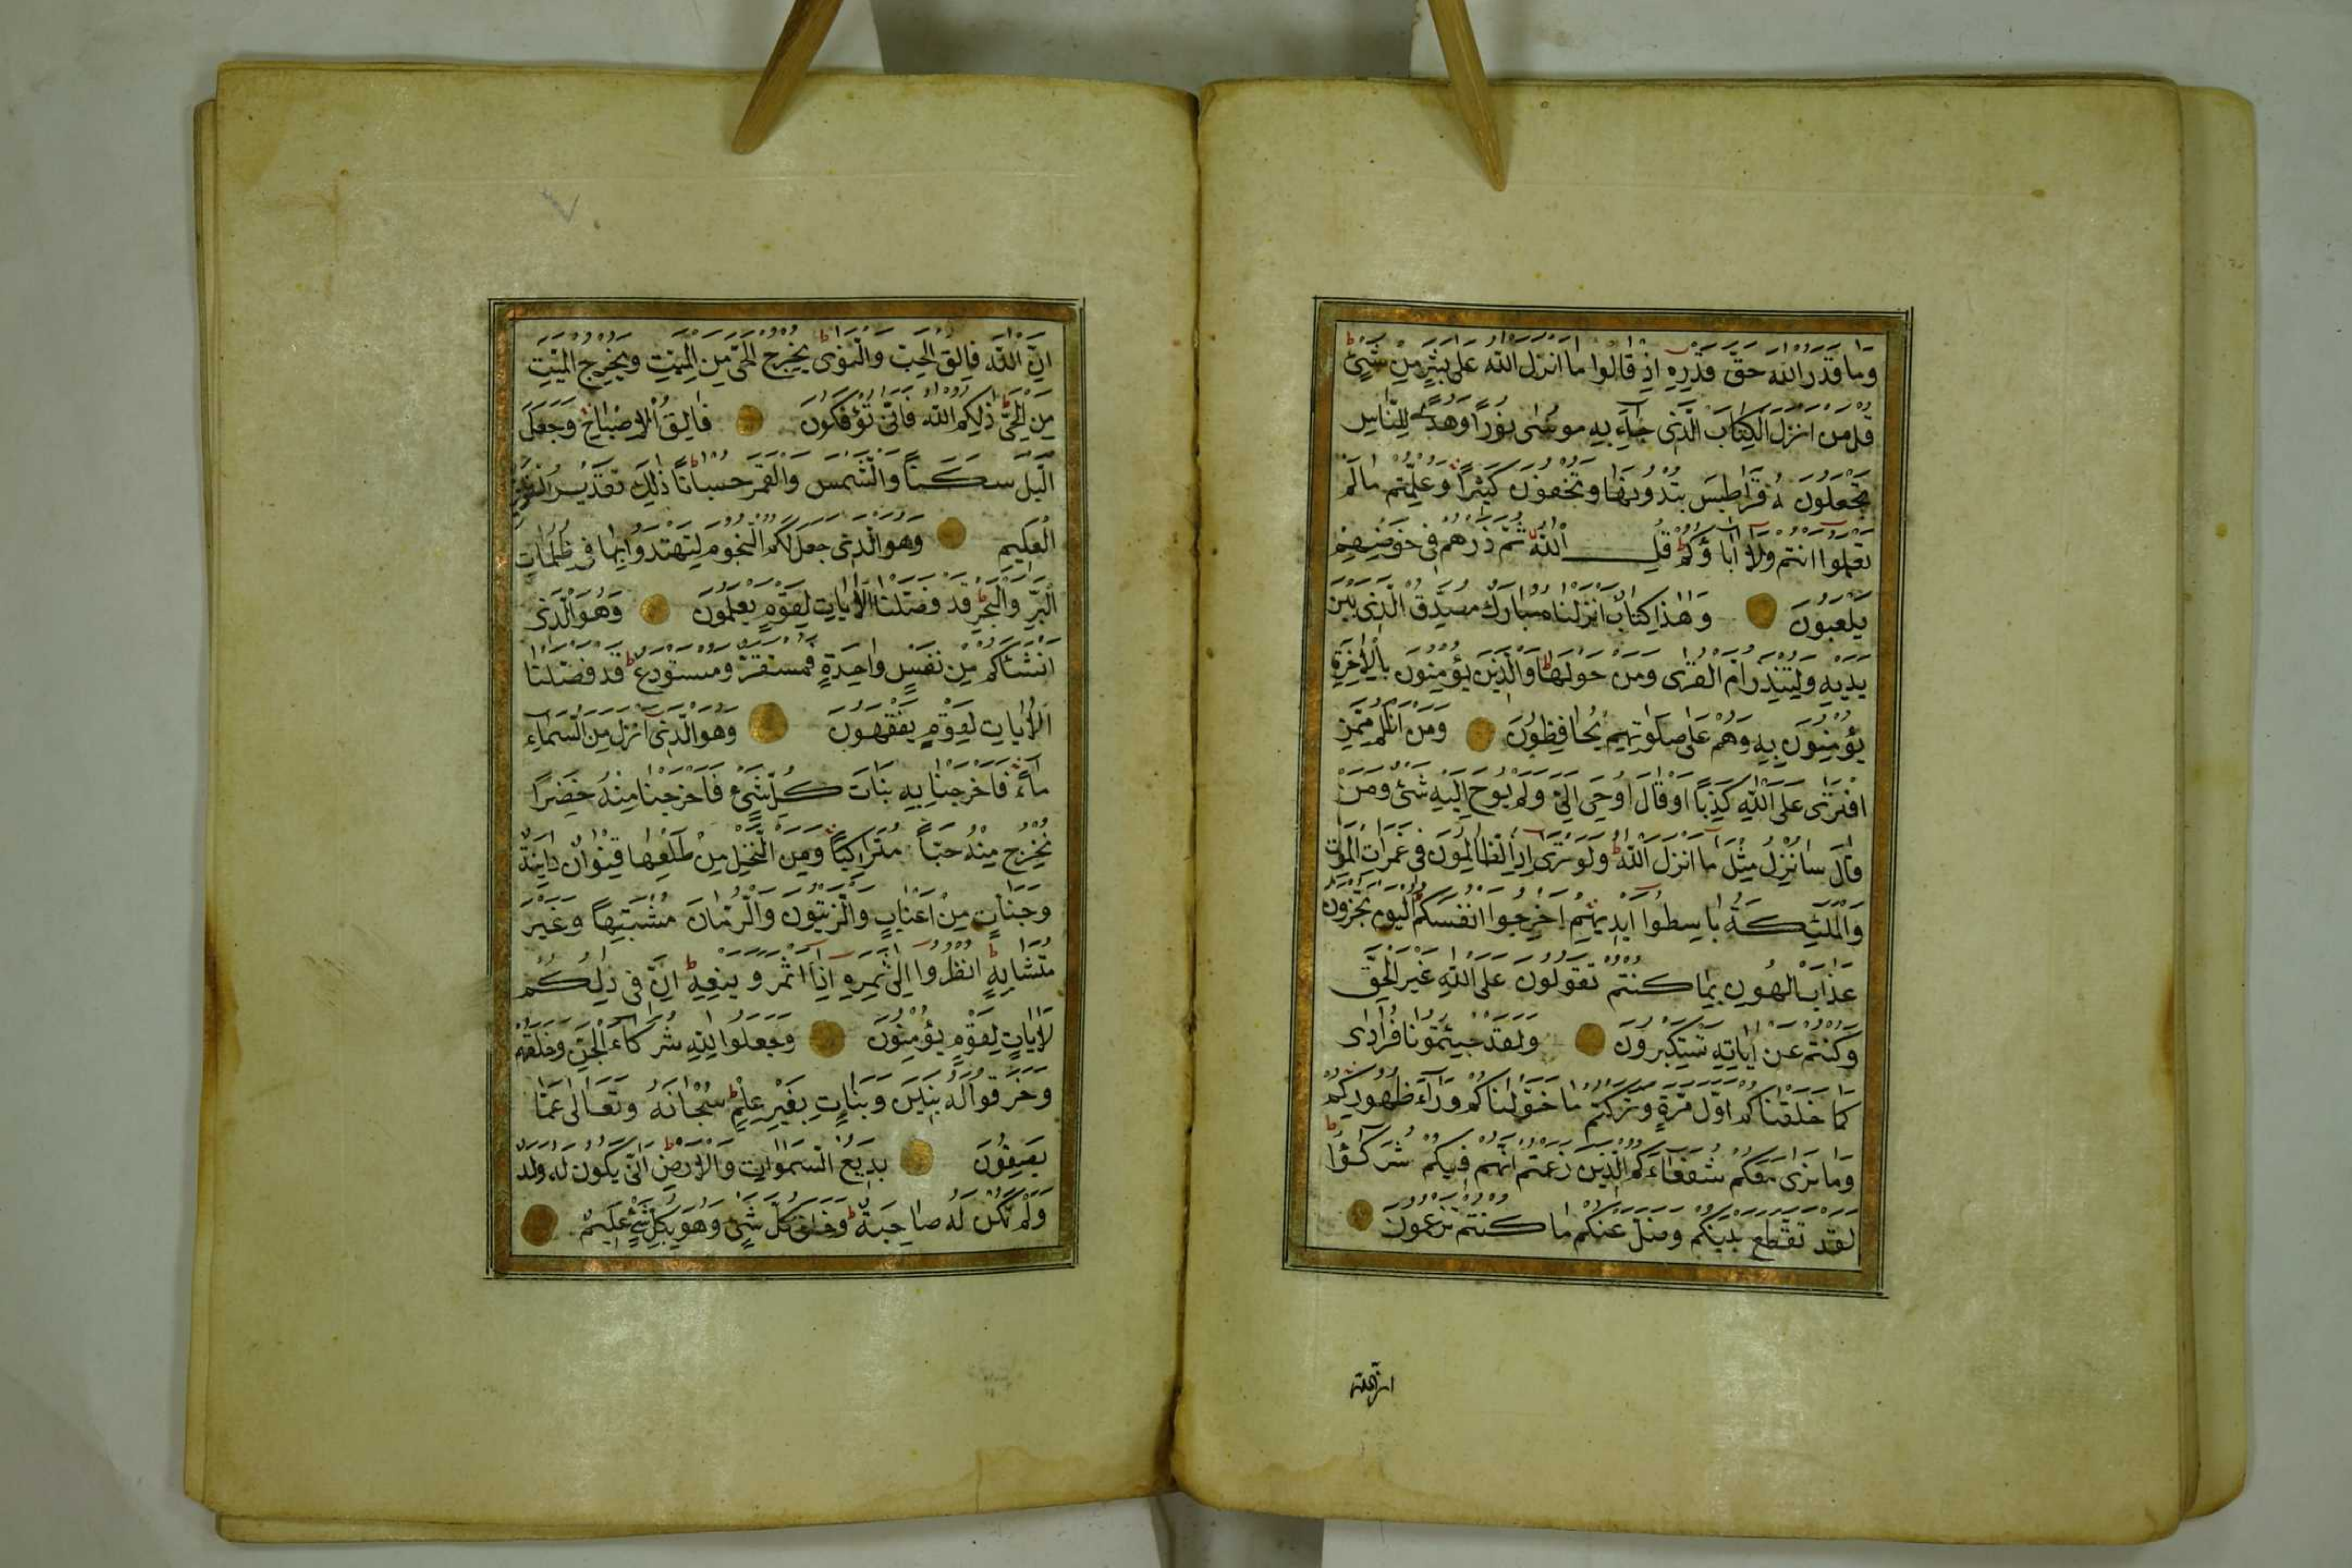 وَمَا قَدَرُوا اللّٰهَ حَقَّ قَدْرِهِ اِذْ قَالُوا مَا اَنْزَلَ اللّٰهُ عَلٰى بَشَرٍ مِنْ شَىْءٍ ط
قُلْ مَنْ اَنْزَلَ الْكِتَابَ الَّذِى جَاءَ بِهِ مُوسٰى نُورًا وَهُدًى لِلنَّاسِ
تَجْعَلُونَهُ قَرَاطِيسَ تُبْدُونَهَا وَتُخْفُونَ كَثِيرًا وَعُلِّمْتُمْ مَا لَمْ
تَعْلَمُوا اَنْتُمْ وَلَا اٰبَاؤُكُمْ ط قُلِ اللّٰهُ ثُمَّ ذَرْهُمْ فِى خَوْضِهِمْ
يَلْعَبُونَ وَهٰذَا كِتَابٌ اَنْزَلْنَاهُ مُبَارَكٌ مُصَدِّقُ الَّذِى بَيْنَ
يَدَيْهِ وَلِتُنْذِرَ اُمَّ الْقُرٰى وَمَنْ حَوْلَهَا ط وَالَّذِينَ يُؤْمِنُونَ بِالْاٰخِرَةِ
يُؤْمِنُونَ بِهِ وَهُمْ عَلٰى صَلَوتِهِمْ يُحَافِظُونَ وَمَنْ اَظْلَمُ مِمَّنِ
افْتَرٰى عَلَى اللّٰهِ كَذِبًا اَوْ قَالَ اُوحِىَ اِلَىَّ وَلَمْ يُوحَ اِلَيْهِ شَىْءٌ وَمَنْ
قَالَ سَاُنْزِلُ مِثْلَ مَا اَنْزَلَ اللّٰهُ ط وَلَوْ تَرٰى اِذِ الظَّالِمُونَ فِى غَمَرَاتِ الْمَوْتِ
وَالْمَلٰئِكَةُ بَاسِطُوا اَيْدِيهِمْ اَخْرِجُوا اَنْفُسَكُمْ اَلْيَوْمَ تُجْزَوْنَ
عَذَابَ الْهُونِ بِمَا كُنْتُمْ تَقُولُونَ عَلَى اللّٰهِ غَيْرَ الْحَقِّ
وَكُنْتُمْ عَنْ اٰيَاتِهِ تَسْتَكْبِرُونَ وَلَقَدْ جِئْتُمُونَا فُرَادٰى
كَمَا خَلَقْنَاكُمْ اَوَّلَ مَرَّةٍ وَتَرَكْتُمْ مَا خَوَّلْنَاكُمْ وَرَاءَ ظُهُورِكُمْ
وَمَا نَرٰى مَعَكُمْ شُفَعَاءَكُمُ الَّذِينَ زَعَمْتُمْ اَنَّهُمْ فِيكُمْ شُرَكٰؤُا ط
لَقَدْ تَقَطَّعَ بَيْنَكُمْ وَضَلَّ عَنْكُمْ مَا كُنْتُمْ تَزْعُمُونَ
ان الله
اِنَّ اللّٰهَ فَالِقُ الْحَبِّ وَالنَّوٰى ط يُخْرِجُ الْحَىَّ مِنَ الْمَيِّتِ وَيُخْرِجُ الْمَيِّتِ
مِنَ الْحَىِّ ط ذٰلِكُمُ اللّٰهُ فَاَنّٰى تُؤْفَكُونَ فَالِقُ الْاِصْبَاحِ وَجَعَلَ
الَّيْلَ سَكَنًا وَالشَّمْسَ وَالْقَمَرَ حُسْبَانًا ط ذٰلِكَ تَقْدِيرُ الْعَزِيزِ
الْعَلِيمِ وَهُوَ الَّذِى جَعَلَ لَكُمُ النُّجُومَ لِتَهْتَدُوا بِهَا فِى ظُلُمَاتِ
الْبَرِّ وَالْبَحْرِ ط قَدْ فَصَّلْنَا الْاٰيَاتِ لِقَوْمٍ يَعْلَمُونَ وَهُوَ الَّذِى
اَنْشَاَكُمْ مِنْ نَفْسٍ وَاحِدَةٍ فَمُسْتَقَرٌّ وَمُسْتَوْدَعٌ ط قَدْ فَصَّلْنَا
الْاٰيَاتِ لِقَوْمٍ يَفْقَهُونَ وَهُوَ الَّذِى اَنْزَلَ مِنَ السَّمَاءِ
مَاءً فَاَخْرَجْنَا بِهِ نَبَاتَ كُلِّ شَىْءٍ فَاَخْرَجْنَا مِنْهُ خَضِرًا
نُخْرِجُ مِنْهُ حَبًّا مُتَرَاكِبًا وَمِنَ النَّخْلِ مِنْ طَلْعِهَا قِنْوَانٌ دَانِيَةٌ
وَجَنَّاتٍ مِنْ اَعْنَابٍ وَالزَّيْتُونَ وَالرُّمَّانَ مُشْتَبِهًا وَغَيْرَ
مُتَشَابِهٍ ط اُنْظُرُوا اِلٰى ثَمَرِهِ اِذَا اَثْمَرَ وَيَنْعِهِ ط اِنَّ فِى ذٰلِكُمْ
لَاٰيَاتٍ لِقَوْمٍ يُؤْمِنُونَ وَجَعَلُوا لِلّٰهِ شُرَكَاءَ الْجِنَّ وَخَلَقَهُمْ
وَخَرَقُوا لَهُ بَنِينَ وَبَنَاتٍ بِغَيْرِ عِلْمٍ ط سُبْحَانَهُ وَتَعَالٰى عَمَّا
يَصِفُونَ بَدِيعُ السَّمٰوَاتِ وَالْاَرْضِ ط اَنّٰى يَكُونُ لَهُ وَلَدٌ
وَلَمْ تَكُنْ لَهُ صَاحِبَةٌ ط وَخَلَقَ كُلَّ شَىْءٍ وَهُوَ بِكُلِّ شَىْءٍ عَلِيمٌ